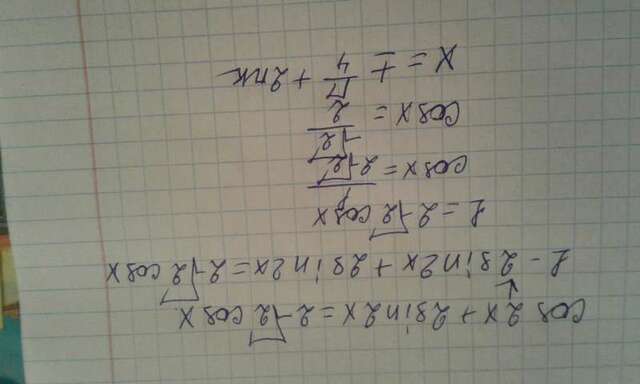 cos2x + 2sin2x = 2√2 cosx
1 - 2sin2x + 2sin2x = 2√2 cosx
1 = 2√2 cosx
cosx = 1/2√2
cosx = √2/2
x = ± π/4 + 2πk